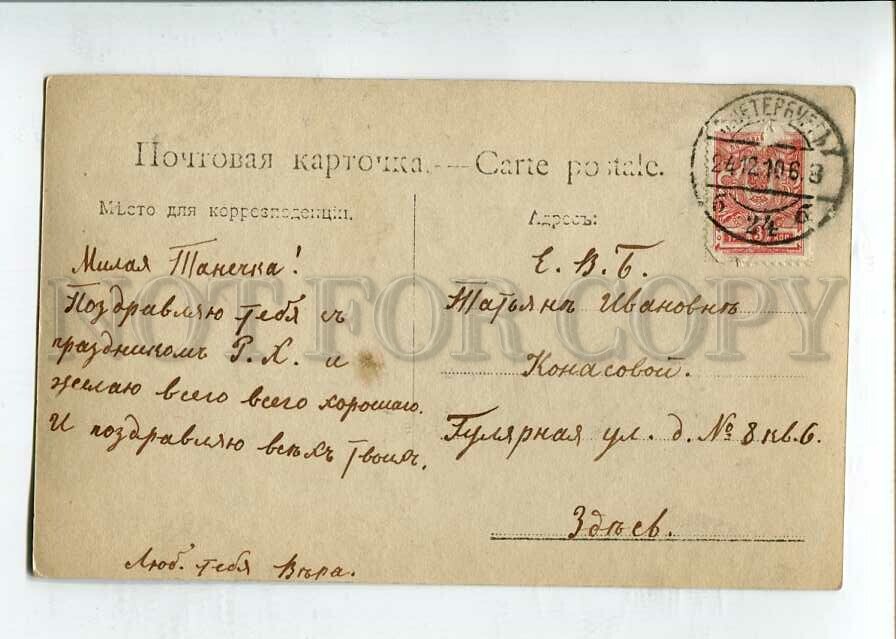 Почтовая карточка. — Carte postale.
Мѣсто для корреспонденціи.
Милая Танечка!
Поздравляю тебя съ
праздникомъ Р. Х. и
желаю всего всего хорошаго.
И поздравляю всѣхъ твоихъ.
Люб. тебя Вѣра.
Адресъ:
Е. В. Б.
Татьянѣ Ивановнѣ
Конасовой.
Гулярная ул. д. № 8 кв. 6.
Здѣсь.
24.12.10
24
NOT FOR COPY